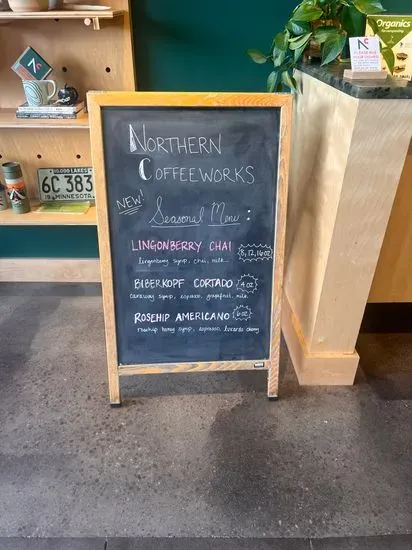 NORTHERN
COFFEEWORKS
NEW!
Seasonal Menu:
LINGONBERRY CHAI 8, 12, 16 OZ
lingonberry syrup, chai, milk
BIBERKOPF CORTADO 4 OZ
caraway syrup, espresso, grapefruit, milk
ROSEHIP AMERICANO 6 OZ
rosehip honey syrup, espresso, luxardo cherry
10,000 LAKES
6C 383
MINNESOTA
Organics